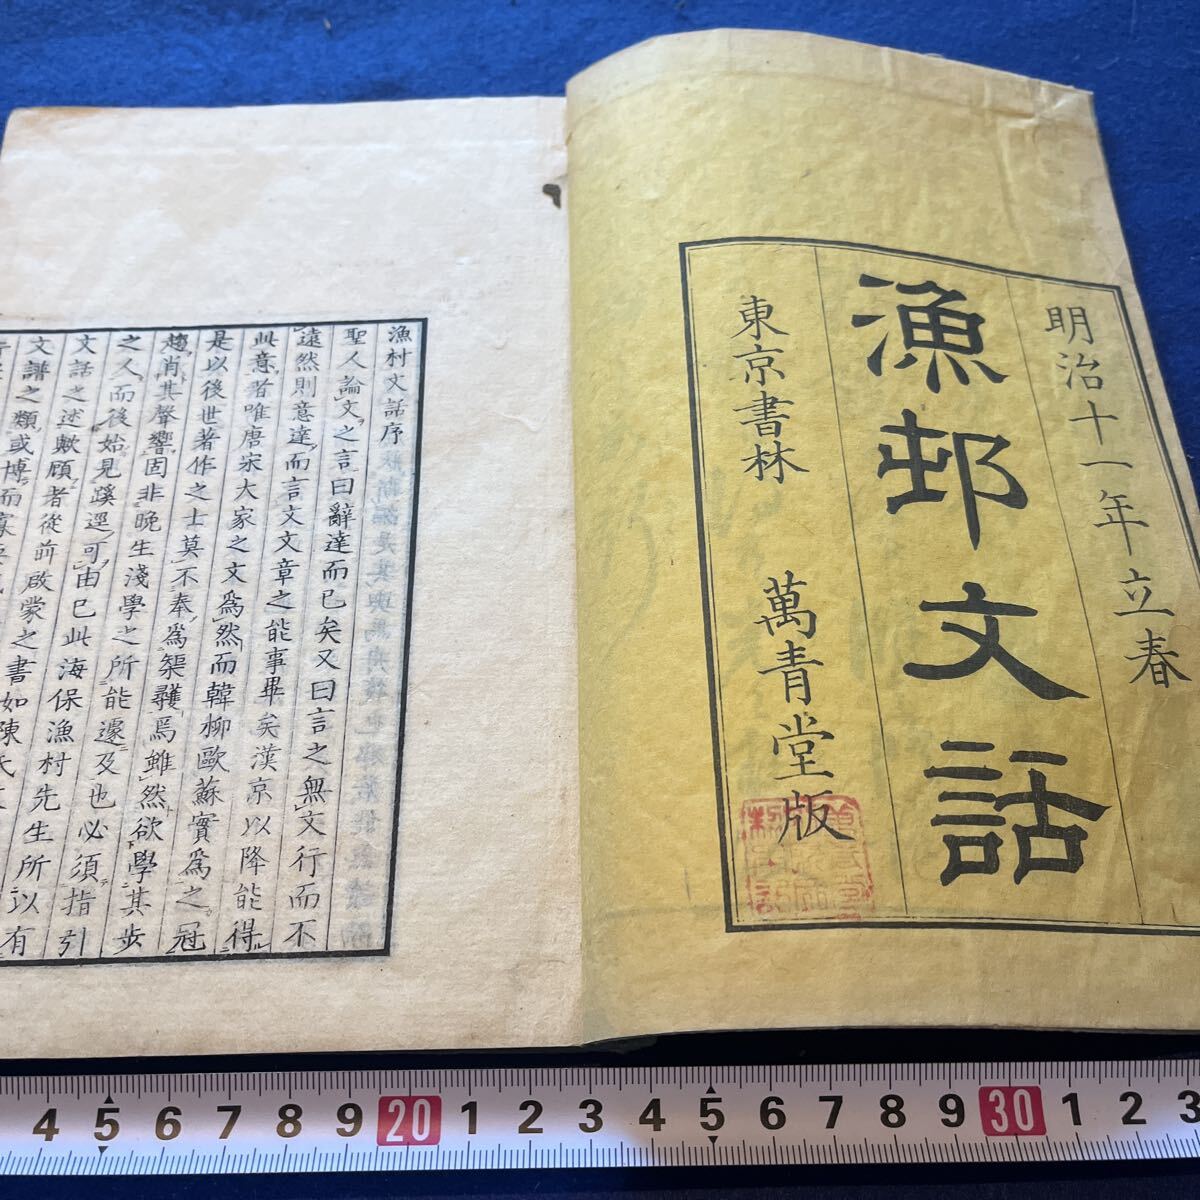 明治十一年立春
漁邨文話
東京書林 萬青堂版
漁村文話序
聖人論文之言曰辭達而已矣又曰言之無文行而不
遠然則意達而言文文章之能事畢矣漢京以降能得
此意者唯唐宋大家之文爲然而韓柳歐蘇實爲之冠
是以後世著作之士莫不奉爲榘矱焉雖然欲學其步
趨肖其聲響固非晚生淺學之所能遽及也必須指引
之人而後始見蹊逕可由已此海保漁村先生所以有
文話之述歟顧者從前啟蒙之書如陳氏
文譜之類或博而寡要
4 5 6 7 8 9 20 1 2 3 4 5 6 7 8 9 30 1 2 3